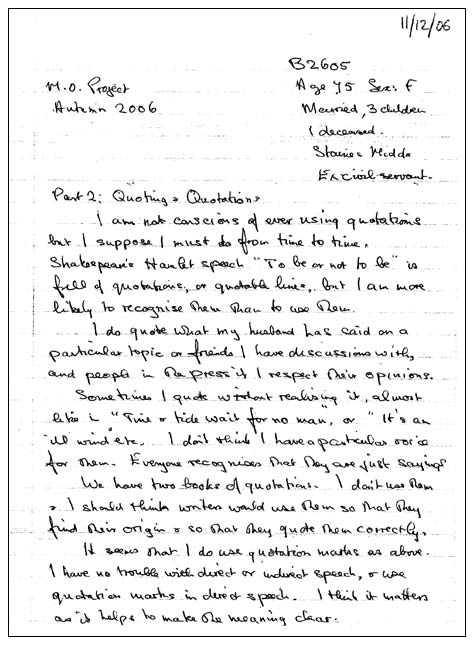 11/12/06
B2605
M.O. Project
Age 75 Sex: F
Autumn 2006
Married, 3 children
1 deceased.
Staines Middx
Ex civil servant.
Part 2: Quoting & Quotations
I am not conscious of ever using quotations
but I suppose I must do from time to time.
Shakespeare's Hamlet speech "To be or not to be" is
full of quotations, or quotable lines, but I am more
likely to recognise them than to use them.
I do quote what my husband has said on a
particular topic or friends I have discussions with,
and people in the press if I respect their opinions.
Sometimes I quote without realising it, almost
like i "Time & tide wait for no man", or "It's an
ill wind" etc. I don't think I have a particular voice
for them. Everyone recognises that they are just sayings
We have two books of quotations. I don't use them
& I should think writers would use them so that they
find their origin & so that they quote them correctly.
It seems that I do use quotation marks as above.
I have no trouble with direct or indirect speech, & use
quotation marks in direct speech. I think it matters
as it helps to make the meaning clear.